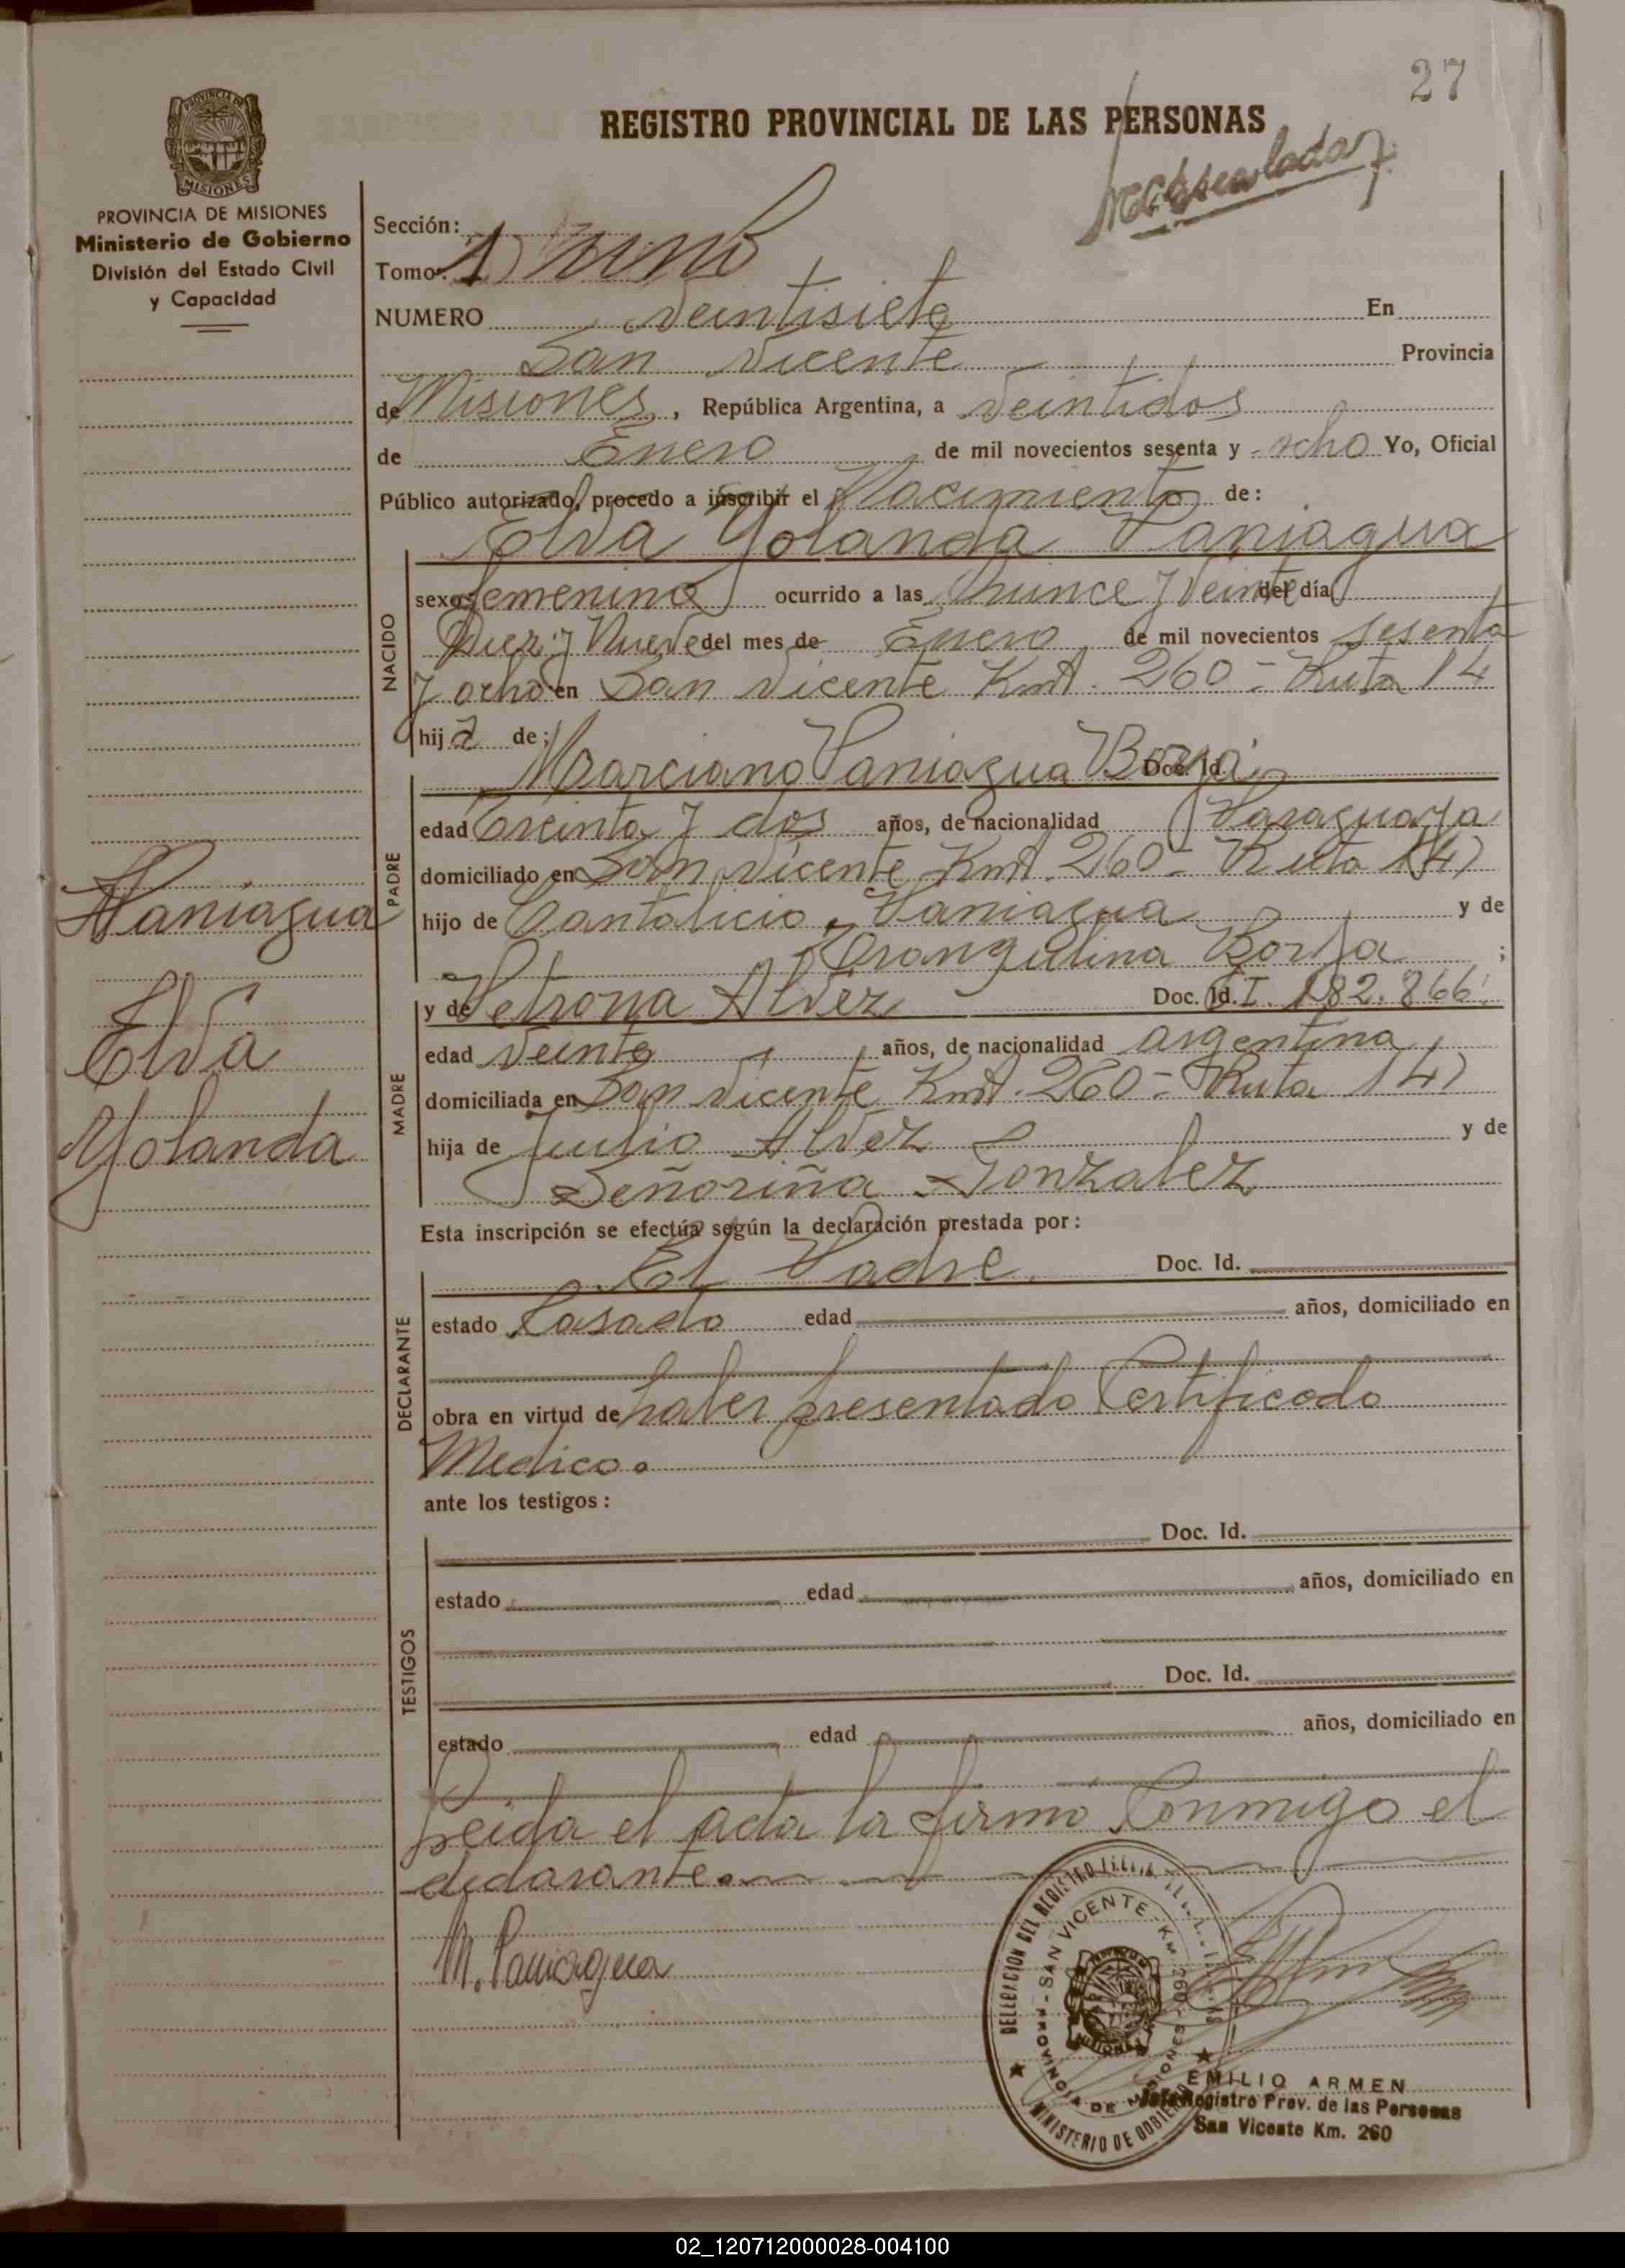 27
REGISTRO PROVINCIAL DE LAS PERSONAS
PROVINCIA DE MISIONES
Ministerio de Gobierno
División del Estado Civil
y Capacidad
Sección:
Tomo: 1) uno
NUMERO veintisiete En
San Vicente Provincia
de Misiones, República Argentina, a veintidos
de Enero de mil novecientos sesenta y ocho Yo, Oficial
Público autorizado, procedo a inscribir el Nacimiento de:
Elva Yolanda Paniagua
NACIDO
sexo femenino ocurrido a las Quince y Veinte del día
Diez y Nueve del mes de Enero de mil novecientos sesenta
y ocho en San Vicente Kmt. 260 - Ruta 14
hija de:
Marciano Paniagua Borja Doc. Id.
PADRE
edad Treinta y dos años, de nacionalidad Paraguaya
domiciliado en San Vicente Kmt. 260 - Ruta 14)
hijo de Cantalicio Paniagua y de
Tranqulina Borja ;
y de Petrona Alvez Doc. Id. C.I. 182.866
MADRE
edad veinte años, de nacionalidad argentina
domiciliada en San Vicente Kmt. 260 - Ruta 14)
hija de Julio Alvez y de
Señoriña Gonzalez
Esta inscripción se efectúa según la declaración prestada por:
El Padre Doc. Id.
DECLARANTE
estado Casado edad años, domiciliado en
obra en virtud de haber presentado Certificado
Medico.
ante los testigos:
Doc. Id.
TESTIGOS
estado edad años, domiciliado en
Doc. Id.
estado edad años, domiciliado en
Leida el acta la firmó Conmigo el
declarante.
M. Paniagua
Paniagua
Elva
Yolanda
DELEGACION DEL REGISTRO
SAN VICENTE - Km 260
PROVINCIA DE MISIONES
MINISTERIO DE GOBIERNO
MISIONES
EMILIO ARMEN
Jefe Registro Prov. de las Personas
San Vicente Km. 260
02_120712000028-004100